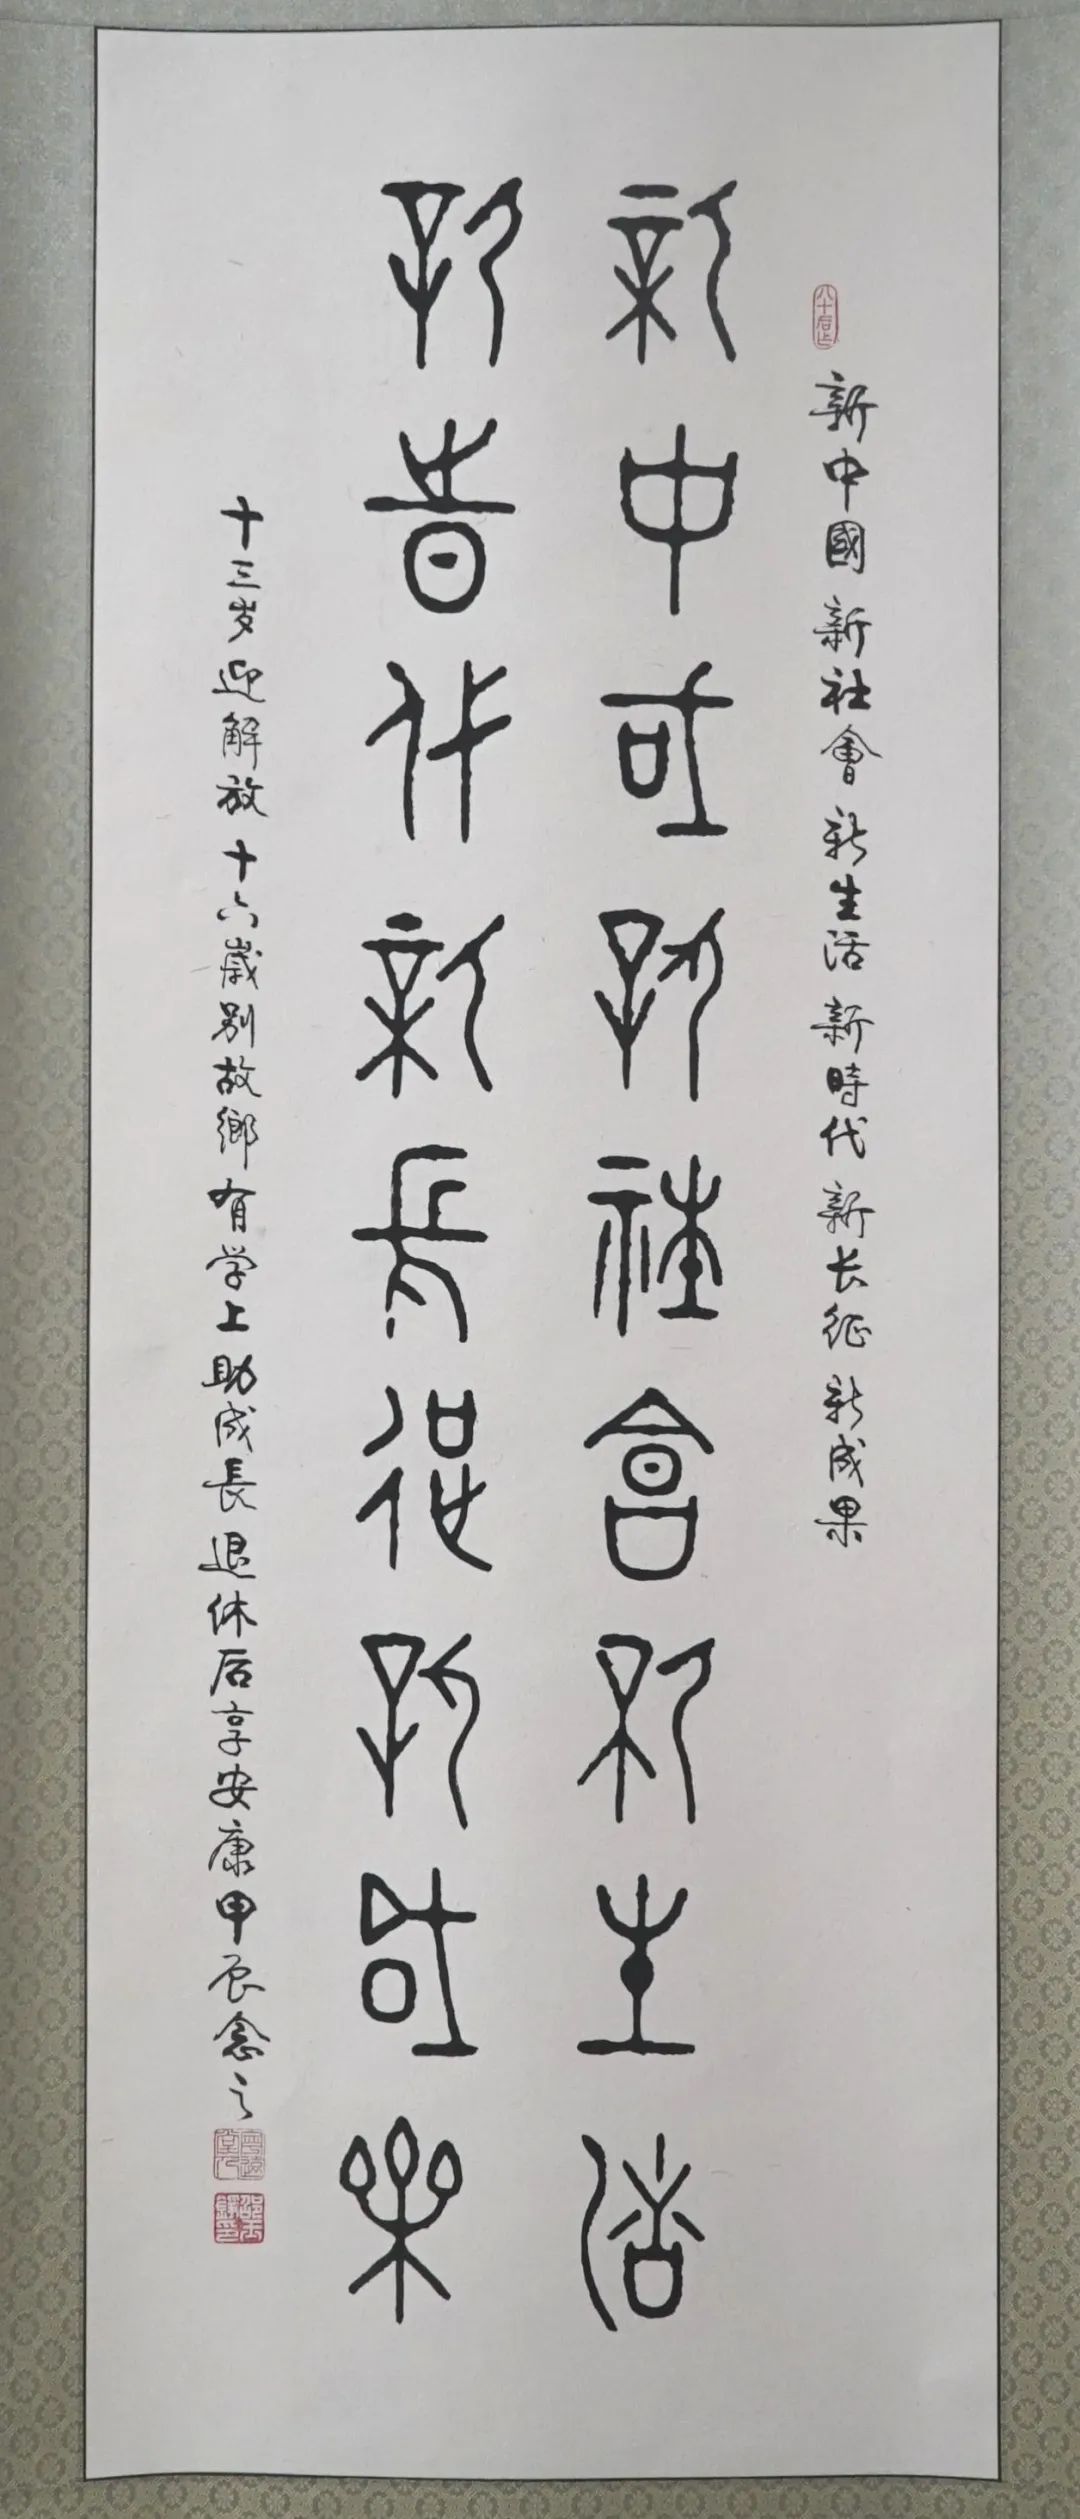 八十后作
新中國 新社會 新生活 新時代 新长征 新成果
新中國新社會新生活
新時代新長征新成果
十三岁迎解放十六歲别故鄉有学上助成長退休后享安康甲辰念之